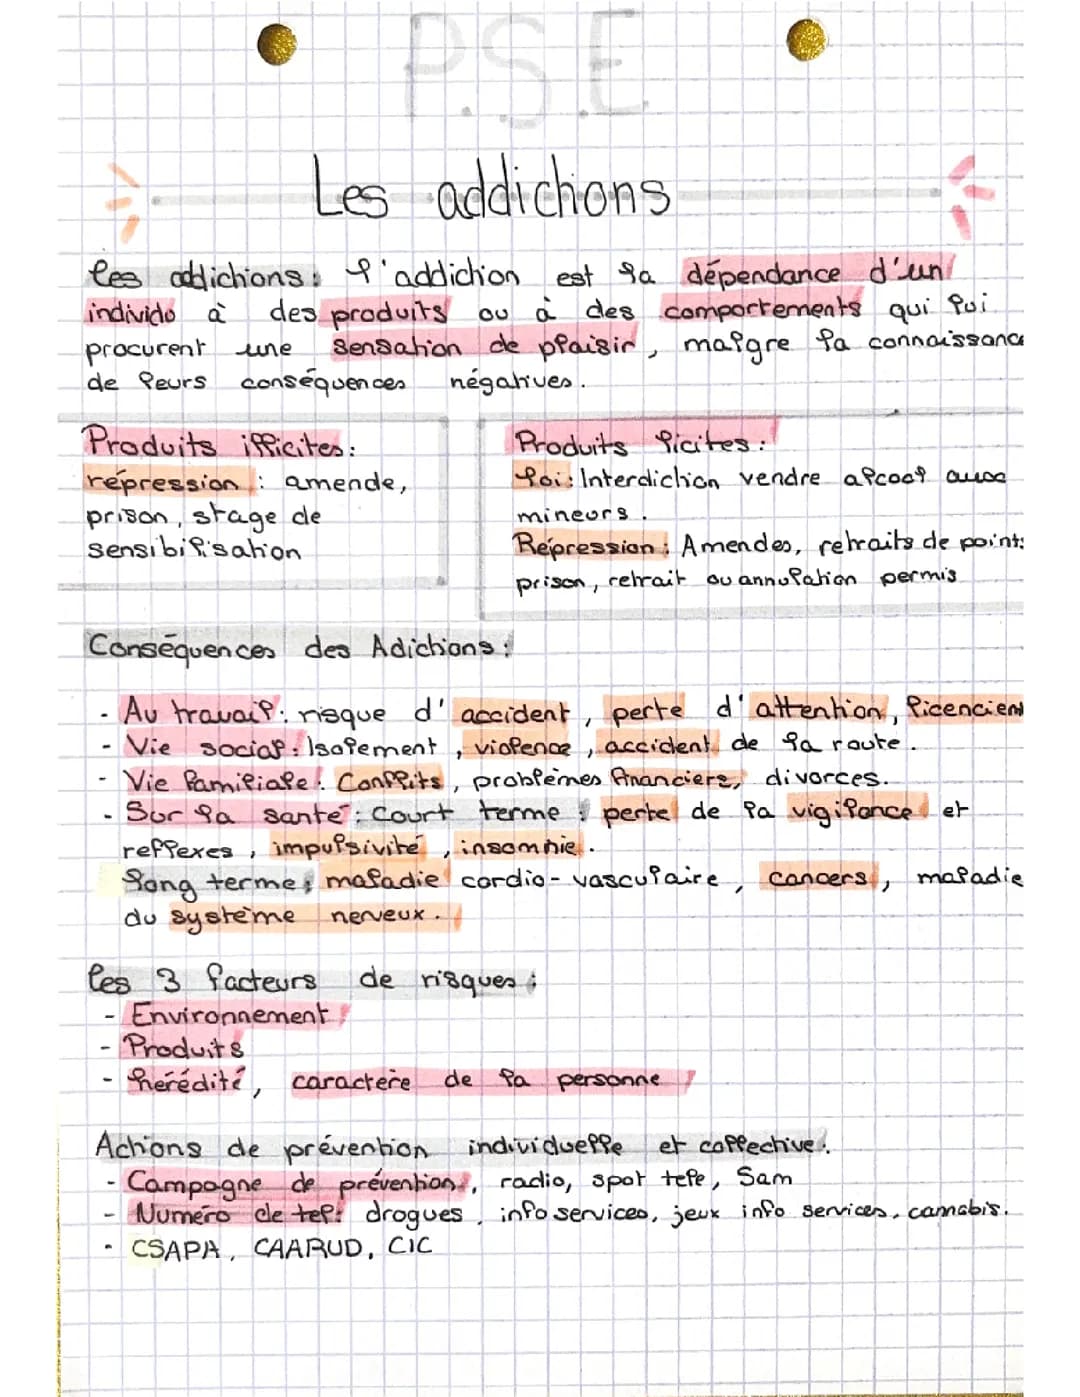 P.S.E
Les addictions
les addictions: l'addiction est la dépendance d'un
individo à des produits ou à des comportements qui lui
procurent une sensation de plaisir, malgre la connaissance
de leurs conséquences négatives.
Produits illicites:
répression : amende,
prison, stage de
sensibilisation
Produits licites:
loi: Interdiction vendre alcool aux
mineurs.
Répression: Amendes, retraits de point
prison, retrait ou annulation permis
Conséquences des Adictions:
- Au travail: risque d'accident, perte d'attention, licenciem
- Vie social: Isolement, violence, accident de la route.
- Vie familiale: Conflits, problèmes financiers, divorces.
- Sur la santé: Court terme: perte de la vigilance et
reflexes, impulsivité, insomnie.
Long terme: maladie cardio-vasculaire, cancers, maladie
du système nerveux.
les 3 facteurs de risques:
- Environnement
- Produits
- hérédité, caractère de la personne
Actions de prévention individuelle et collective:
- Campagne de prévention, radio, spot tele, Sam
- Numéro de tel: drogues, info services, jeux info services, cannabis.
- CSAPA, CAARUD, CIC